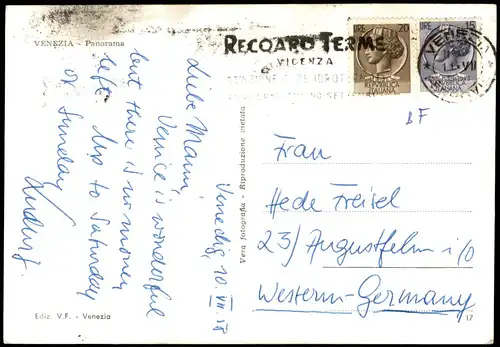 VENEZIA - Panorama
Venedig, 10. VII. 58
Liebe Mami,
Venice is wonderful
but there is no money
left. Live to Saturday
or Sunday
Ediz. V.F. - Venezia
Vera fotografia - Riproduzione vietata
RECOARO TERME
VICENZA
LIRE 20
REPUBBLICA
ITALIANA
LIRE 15
ITALIANA
VENEZIA
BF
Frau
Hede Freisel
23) Augustfehn i/o
Western-Germany
17